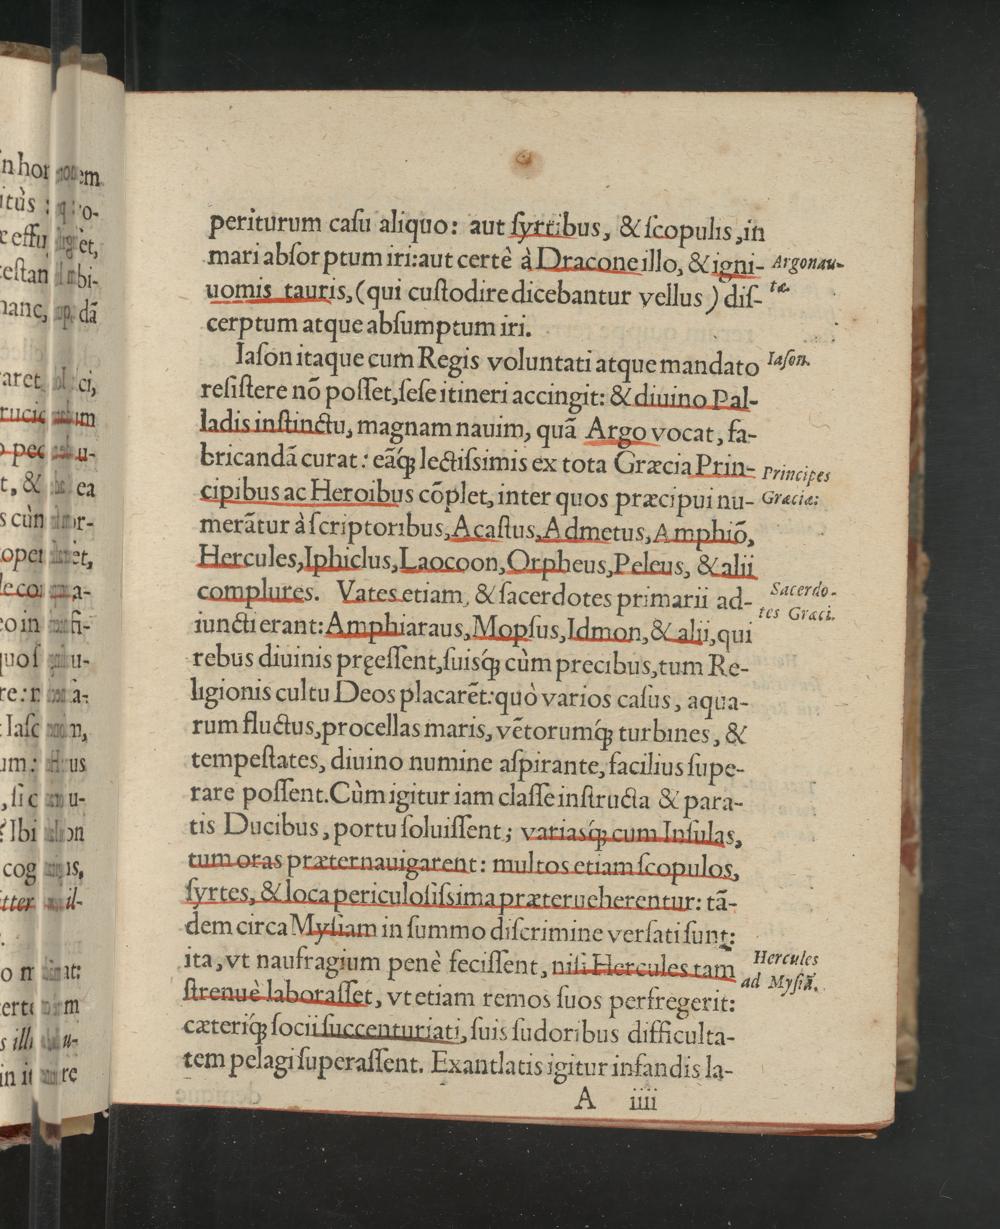 periturum caſu aliquo: aut ſyrtibus, & ſcopulis, in
mari abſorptum iri: aut certè à Dracone illo, & igni-
Argonau-
uomis tauris, (qui cuſtodire dicebantur vellus) diſ-
tæ.
cerptum atque abſumptum iri.
Iaſon itaque cum Regis voluntati atque mandato
Iaſon.
reſiſtere nō poſſet, ſeſe itineri accingit: & diuino Pal-
ladis inſtinctu, magnam nauim, quā Argo vocat, fa-
bricandā curat: eāq́; lectiſsimis ex tota Græcia Prin-
Principes
cipibus ac Heroibus cōplet, inter quos præcipui nu-
Græciæ:
merātur à ſcriptoribus, Acaſtus, Admetus, Amphiō,
Hercules, Iphiclus, Laocoon, Orpheus, Peleus, & alii
complures. Vates etiam, & ſacerdotes primarii ad-
Sacerdo-
tes Græci.
iuncti erant: Amphiaraus, Mopſus, Idmon, & alii, qui
rebus diuinis pręeſſent, ſuisq́; cùm precibus, tum Re-
ligionis cultu Deos placarēt: quò varios caſus, aqua-
rum fluctus, procellas maris, vētorumq́; turbines, &
tempeſtates, diuino numine aſpirante, facilius ſupe-
rare poſſent. Cùm igitur iam claſſe inſtructa & para-
tis Ducibus, portu ſoluiſſent; variasq́; cum Inſulas,
tum oras præternauigarent: multos etiam ſcopulos,
ſyrtes, & loca periculoſiſsima præterueherentur: tā-
dem circa Myſiam in ſummo diſcrimine verſati ſunt:
ita, vt naufragium penè feciſſent, niſi Hercules tam
Hercules
ad Myſiā.
ſtrenuè laboraſſet, vt etiam remos ſuos perfregerit:
cæteriq́; ſocii ſuccenturiati, ſuis ſudoribus difficulta-
tem pelagi ſuperaſſent. Exantlatis igitur infandis la-
A iiii